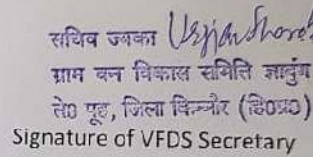 सचिव
ग्राम वन विकास समिति ज्ञाबुंग
ते0 पूह, जिला किन्नौर (हि0प्र0)
Signature of VFDS Secretary